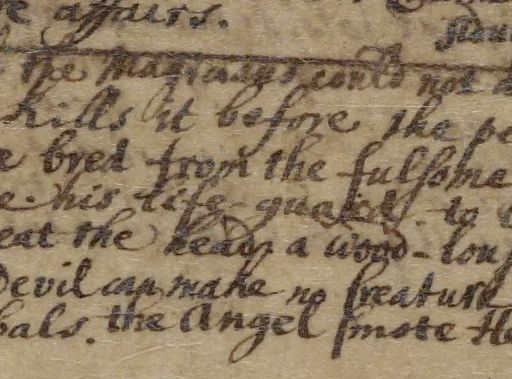 affairs.
the Magicians could not
kills it before the
bred from the fulsome
his life-guard. to
eat the head. a wood-
Devil can make no creature
bals. the Angel smote the